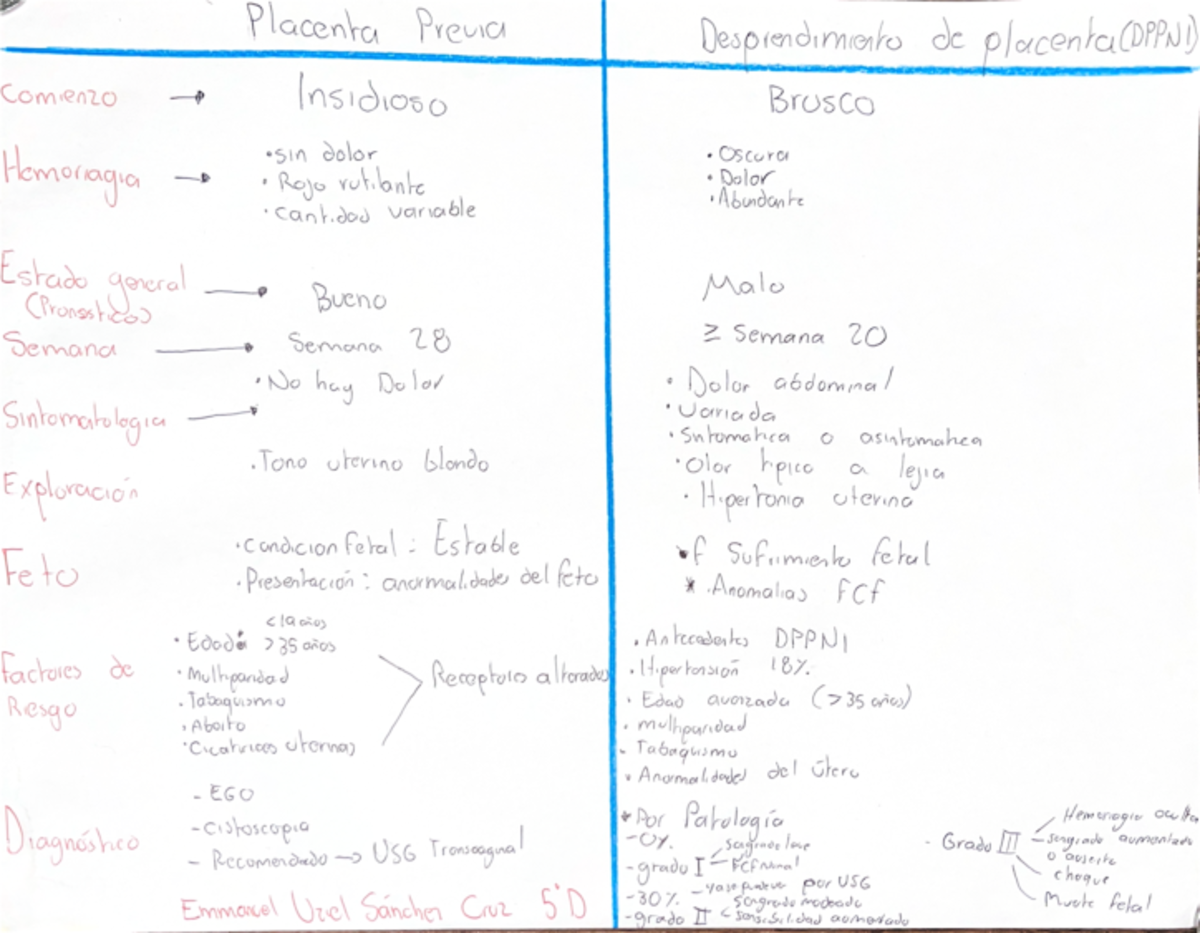 Placenta Previa
Desprendimiento de placenta (DPPNI)
Comienzo
Insidioso
Brusco
Hemorragia
• sin dolor
• Rojo rutilante
• cantidad variable
• Oscura
• Dolor
• Abundante
Estado general
(Pronostico)
Bueno
Malo
Semana
Semana 28
≥ Semana 20
Sintomatologia
• No hay Dolor
• Dolor abdominal
• Variada
• Sintomatica o asintomatica
• Olor tipico a lejia
• Hipertonia uterina
Exploración
• Tono uterino blando
Feto
• Condicion fetal : Estable
• Presentación : anormalidades del feto
Sufrimiento fetal
* • Anomalias FCf
Factores de
Resgo
< 19 años
• Edad: > 35 años
• Multiparidad
• Tabaquismo
• Aborto
• Cicatrices uterinas
Receptoro alterados
• Antecedentes DPPNI
• Hipertensión 18%
• Edad avanzada (>35 años)
• multiparidad
- Tabaquismo
• Anormalidades del útero
Diagnóstico
- EGO
- Cistoscopia
- Recomendado → USG Transvaginal
* Por Patología
- 0%
- grado I
sangrado leve
FCF normal
- 30% - ya se puede ver por USG
- grado II
Sangrado moderado
sensibilidad aumentada
- Grado III
Hemorragia oculta
sangrado aumentado
o ausente
choque
Muerte fetal
Emmanuel Uziel Sánchez Cruz 5°D